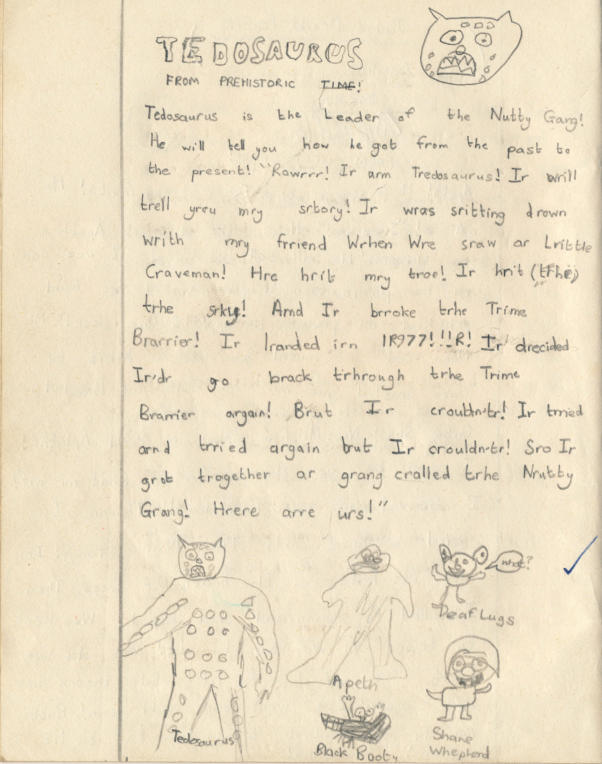 TEDOSAURUS
FROM PREHISTORIC TIME!
Tedosaurus is the Leader of the Nutty Gang!
He will tell you how he got from the past to
the present! "Rawrrr! Ir arm Tredosaurus! Ir wrill
trell yrou mry srtory! Ir wras sritting drown
writh mry frriend Wrhen Wre sraw ar Lrittle
Craveman! Hre hrit mry troe! Ir hrit (trhe)
trhe srky! Arnd Ir brroke trhe Trime
Brarrier! Ir lranded irn 1R977!!!R! Ir drecided
Ir'dr go brack trhrough trhe Trime
Brarrier argain! Brut Ir crouldn·tr! Ir trried
arnd trried argain but Ir crouldn·tr! Sro Ir
grot trogether ar grang cralled trhe Nrutty
Grang! Hrere arre urs!"
what?
Deaf Lugs
Apeth
Tedosaurus
Black Booty
Shane
Whepherd